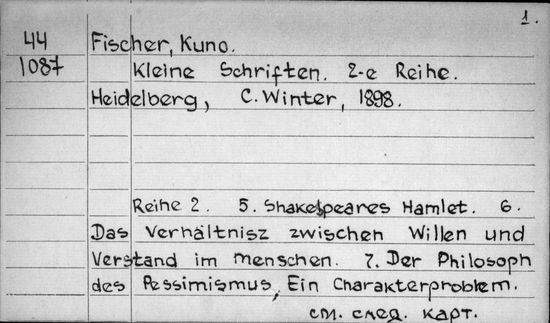 1.
44 Fischer, Kuno.
1087 Kleine Schriften. 2-e Reihe.
Heidelberg, C. Winter, 1898.
Reihe 2. 5. Shakespeares Hamlet. 6.
Das Verhältnisz zwischen Willen und
Verstand im menschen. 7. Der Philosoph
des Pessimismus, Ein Charakterproblem.
см. след. карт.